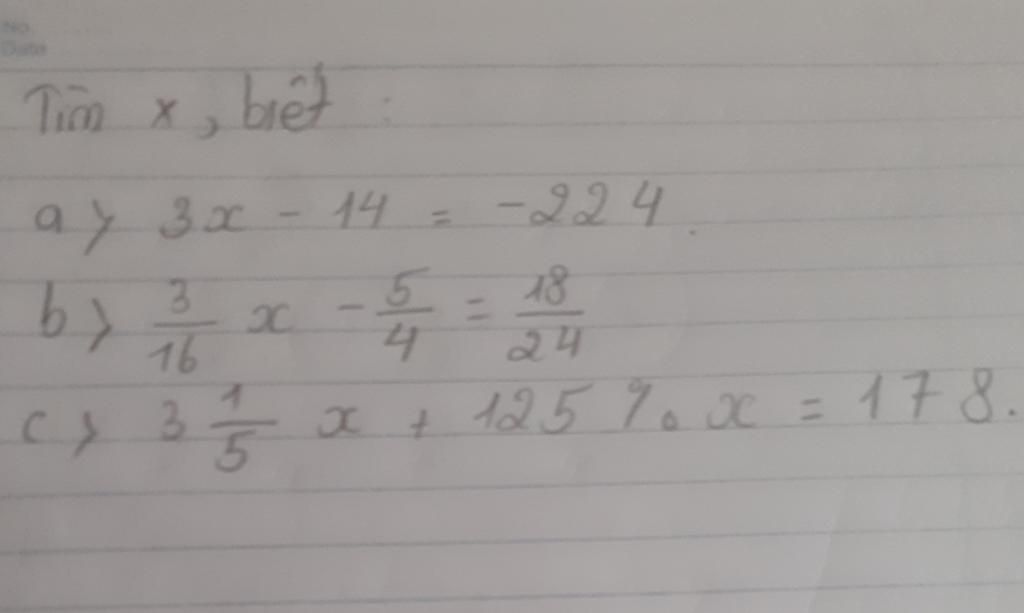 No.
Date
Tìm x, biết :
a> 3x - 14 = -224.
b> 3/16 x - 5/4 = 18/24
c> 3 1/5 x + 125 % x = 178.